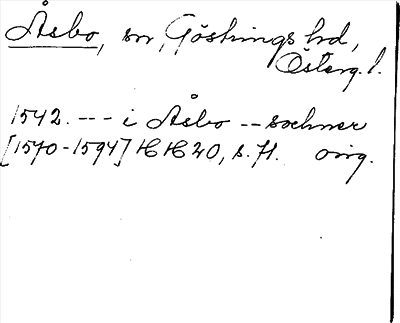 Åsbo, sn, Göstrings hd,
Österg. l.
1542. --- i Åsbo -- sochner
[1570-1594] HH 20, s. 71. orig.